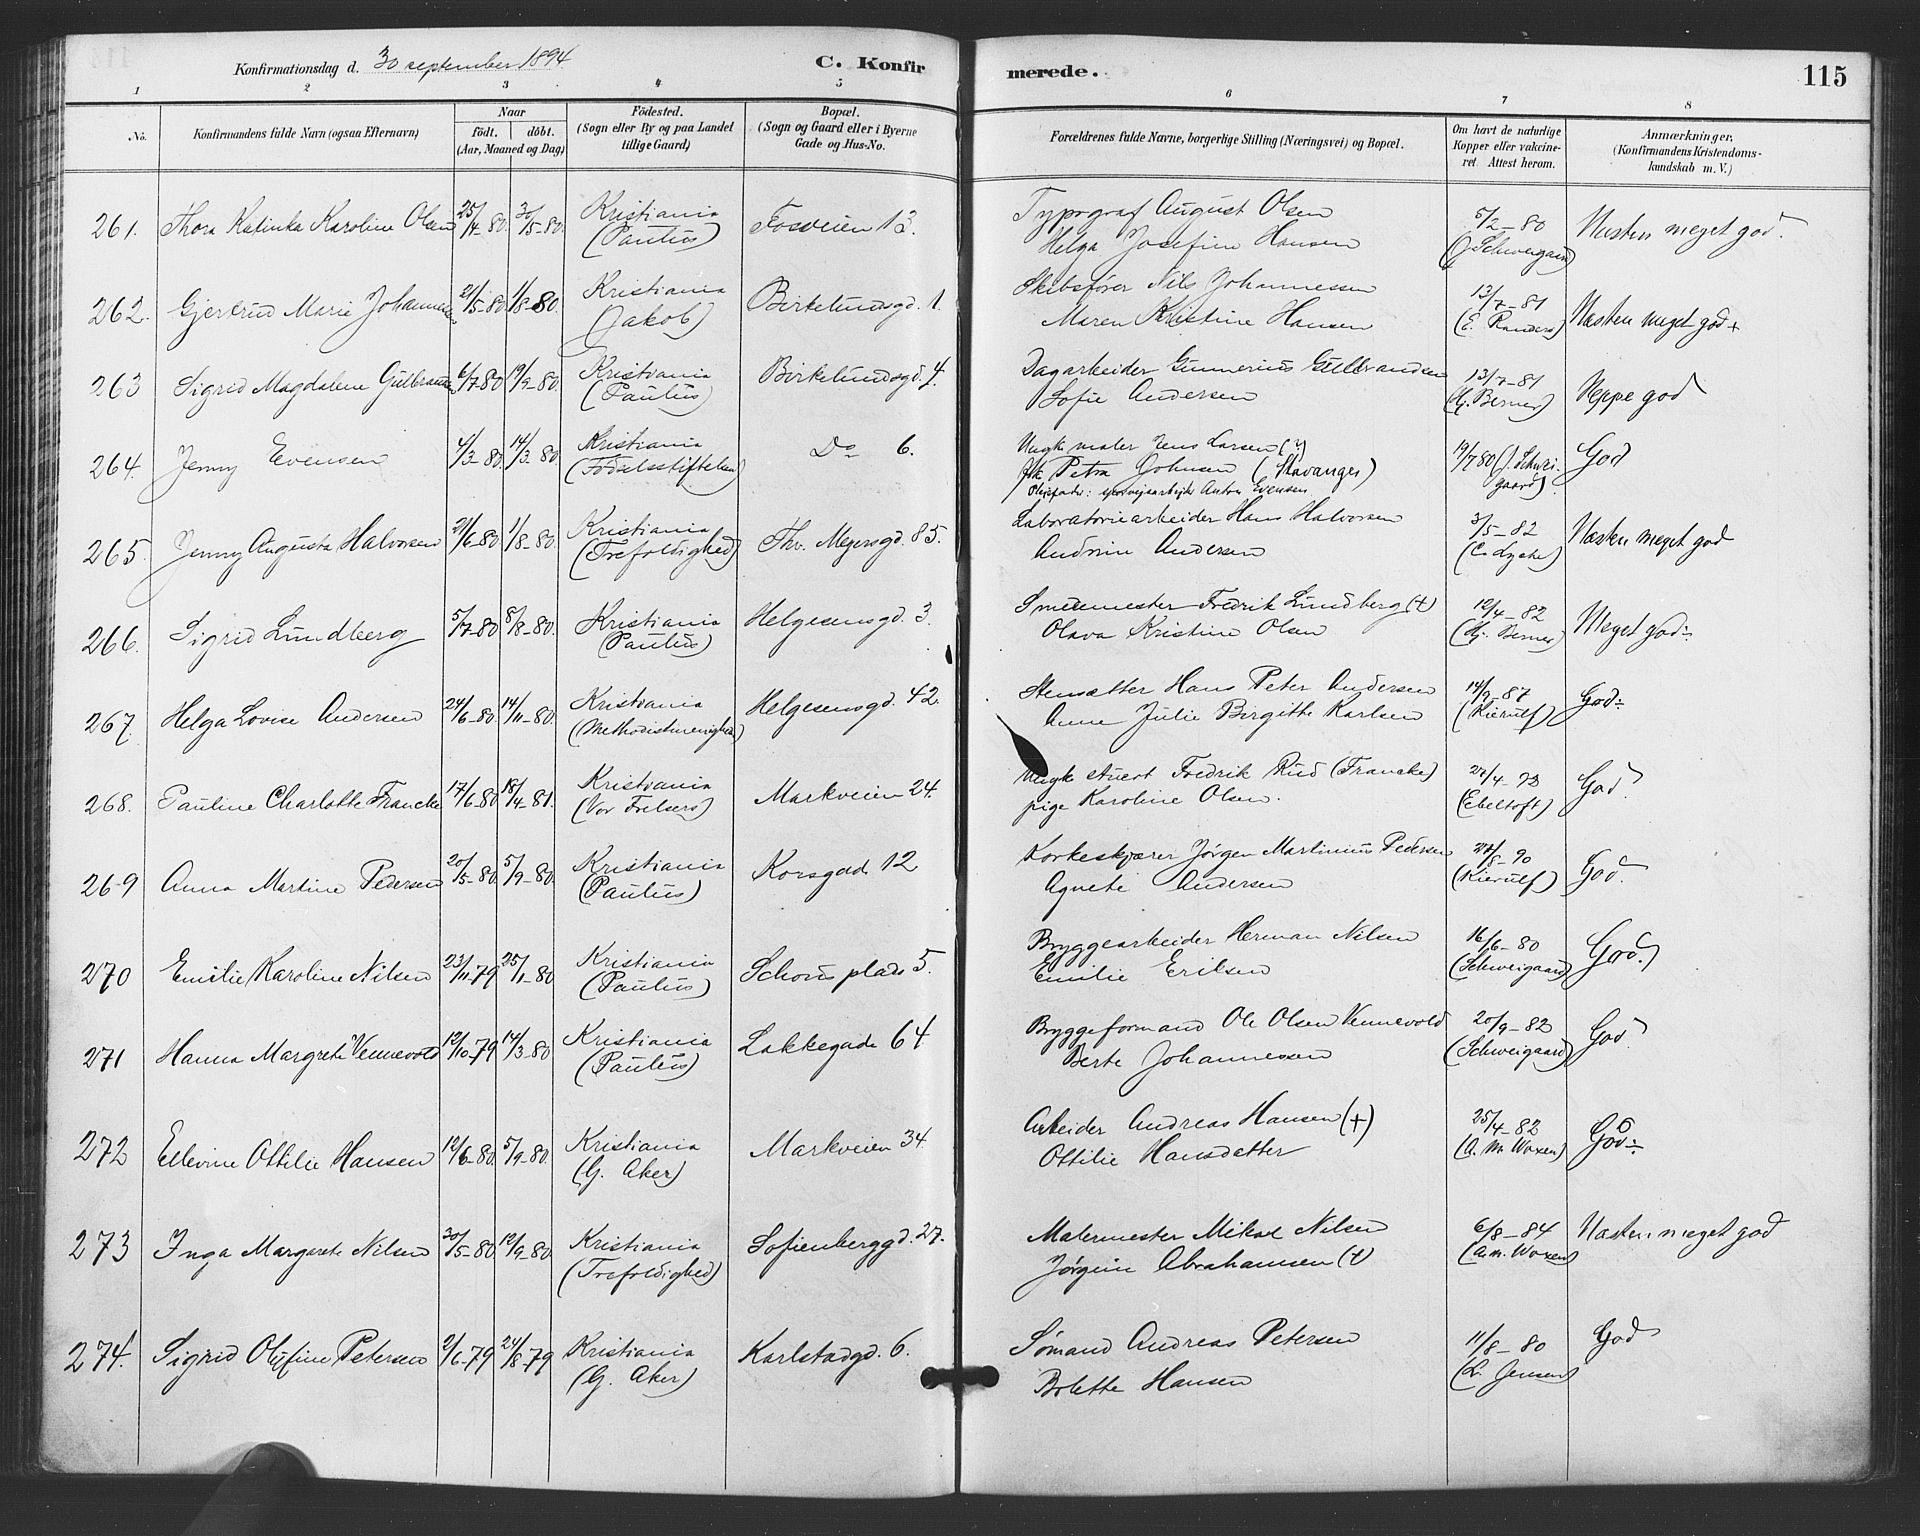 Konfirmationsdag d. 30 september 1894.
C. Konfirmerede.
115
1 2 3 4 5 6 7 8
No. Konfirmandens fulde Navn (ogsaa Efternavn) Naar födt. döbt. (Aar, Maaned og Dag) Födested. (Sogn eller By og paa Landet tillige Gaard) Bopæl. (Sogn og Gaard eller i Byerne Gade og Hus-No. Forældrenes fulde Navne, borgerlige Stilling (Næringsvei) og Bopæl. Om havt de naturlige Kopper eller vakcineret. Attest herom. Anmærkninger. (Konfirmandens Kristendomskundskab m. V.)
261. Thora Katinka Karoline Olsen 25/4-80. 30/5-80. Kristiania (Paulus) Fosveien 13. Typograf August Olsen 5/2-80 Næsten meget god.
Helga Josefine Hansen (J. Schweigaard)
262. Gjertrud Marie Johannessen 21/5-80 1/8-80. Kristiania (Jakob) Birkelundsgd. 1. Skibsfører Nils Johannessen 13/7-81 Næsten meget god +
Maren Kristine Hansen (E. Randers)
263 Sigrid Magdalene Gulbrandsen 6/7-80 19/9-80. Kristiania (Paulus) Birkelundsgd. 4. Dagarbeider Gunnerius Gulbrandsen 13/7-81 Neppe god
Sofie Andersen (Hj. Berner)
264. Jenny Evensen 4/3-80. 14/3-80 Kristiania (Födselsstiftelsen) Do 6. Ungk. maler Jens Larsen (?) 19/7 80 (J. Schweigaard) God
Petra Johnsen (Stavanger)
Anton Evensen
265. Jenny Augusta Halvorsen 21/6-80 1/8-80. Kristiania (Trefoldighed) Thv. Meyersgd. 85. Laboratoriearbeider Hans Halvorsen 3/5-82 Næsten meget god
Andrine Andersen
266. Sigrid Lundberg 5/7-80 8/8-80. Kristiania (Paulus) Helgesensgd. 3. Smedemester Fredrik Lundberg (+) 12/4-82 Meget god÷
Olava Kristine Olsen (Hj. Berner)
267. Helga Lovise Andersen 24/6-80 14/11-80. Kristiania (Methodistmenighed) Helgesensgd. 42. Stensætter Hans Peter Andersen 14/9-87 God÷
Anne Julie Birgitte Karlsen (Kierulf)
268. Pauline Charlotte Francke 17/6-80 18/4-81. Kristiania (Vor Frelsers) Markveien 24. Ungk. stuert Fredrik Rud (Francke) God.
pige Karoline Olsen. (Ebeltoft)
269 Anna Martine Pedersen 20/5-80. 5/9-80. Kristiania (Paulus) Korsgade 12 Korkeskjærer Jørgen Martinius Pedersen God.
Agnete Andersen (Kierulf)
270 Emilie Karoline Nilsen 23/11-79 25/1-80 Kristiania (Paulus) Schous plads 5. Bryggearbeider Herman Nilsen 16/6-80 God.
Emilie Eriksen (Schweigaard)
271 Hanna Margrete Vennevold 12/10-79 14/3-80 Kristiania (Paulus) Lakkegade 64 Bryggeformand Ole Olsen Vennevold 20/9-82 God.
Berte Johannessen (Schweigaard)
272 Ellevine Ottilie Hansen 12/6-80. 5/9-80. Kristiania (G. Aker) Markveien 34. Arbeider Andreas Hansen (+) 25/4-82 God÷
Ottilie Hansdatter (A. M. Woxen)
273 Inga Margarete Nilsen 30/5-80 12/9-80 Kristiania (Trefoldighed) Sofienberggd. 27. Malermester Mikal Nilsen 6/8-84 Næsten meget god
Jørgine Abrahamsen (+) (A. M. Woxen)
274. Sigrid Olufine Petersen 2/6-79 24/8-79 Kristiania (G. Aker) Karlstadgd. 6. Sømand Andreas Petersen 11/8-80 God
Bolette Hansen (L. Jensen)